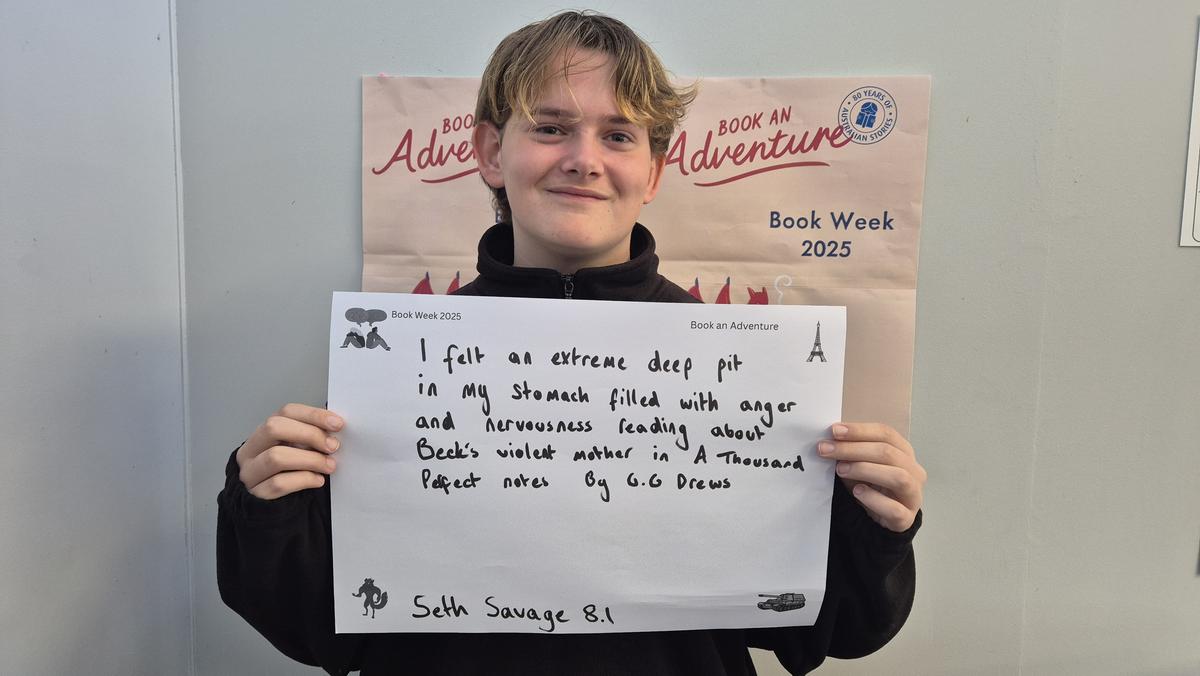 BOOK AN
Adventure
80 YEARS OF
AUSTRALIAN STORIES
Book Week
2025
Book Week 2025
Book an Adventure
I felt an extreme deep pit
in my stomach filled with anger
and nervousness reading about
Beck's violent mother in A Thousand
Pefect notes By G.G Drews
Seth Savage 8.1